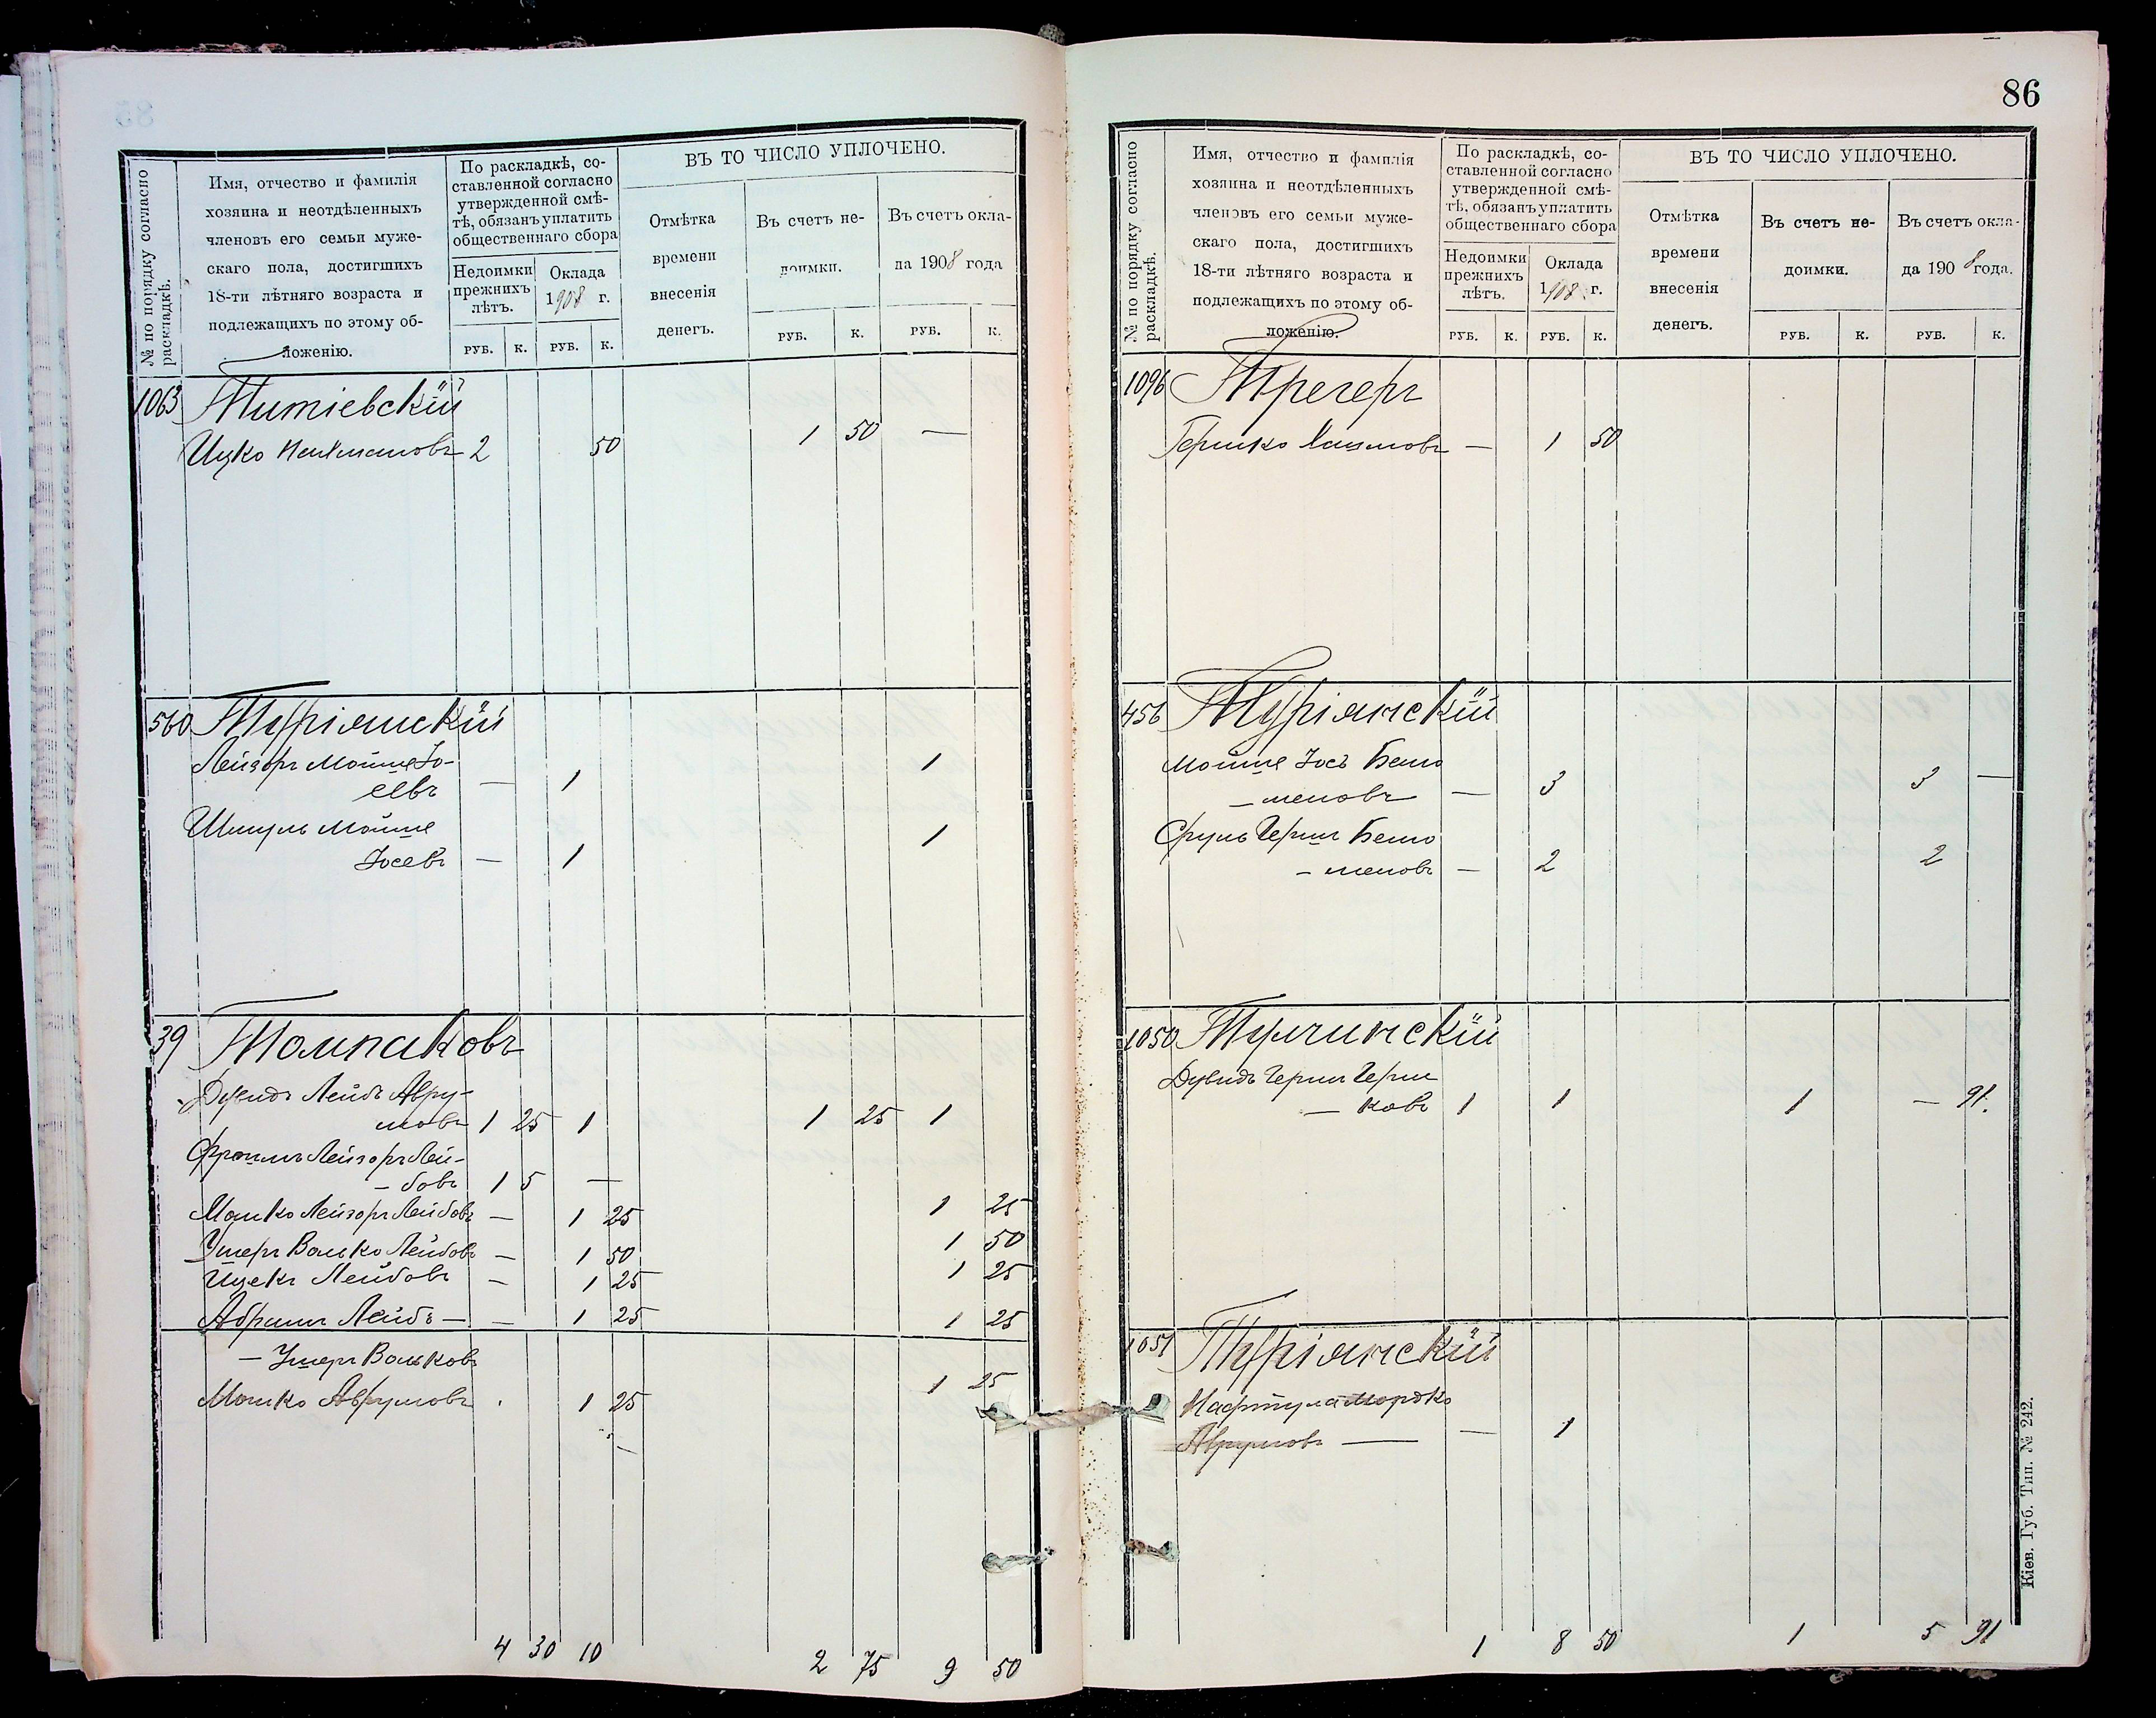 86
№ по порядку согласно раскладкѣ.
Имя, отчество и фамилія
хозяина и неотдѣленныхъ
членовъ его семьи муже-
скаго пола, достигшихъ
18-ти лѣтняго возраста и
подлежащихъ по этому об-
ложенію.
По раскладкѣ, со-
ставленной согласно
утвержденной смѣ-
тѣ, обязанъ уплатить
общественнаго сбора
Недоимки
прежнихъ
лѣтъ.
Оклада
1908 г.
РУБ. К. РУБ. К.
ВЪ ТО ЧИСЛО УПЛОЧЕНО.
Отмѣтка
времени
внесенія
денегъ.
Въ счетъ не-
доимки.
Въ счетъ окла-
да 1908 года
РУБ. К. РУБ. К.
1063 Титіевскій
Ицко Нахмановъ 2 50 1 50 —
560 Турiянскій
Лейзоръ Мойше Іо-
севъ — 1 1
Шмуль Мойше
Іосевъ — 1 1
39 Толпаковъ
Дувидъ Лейбъ Авру-
мовъ 1 25 1 1 25 1
Фроимъ Лейзоръ Лей-
— бовъ 1 5 —
Мошко Лейзоръ Лейбовъ — 1 25 1 25
Ушеръ Волько Лейбовъ — 1 50 1 50
Ицекъ Лейбовъ — 1 25 1 25
Абрамъ Лейбъ — — 1 25 1 25
— Ушеръ Вольковъ
Мошко Аврумовъ 1 25 1 25
4 30 10 2 75 9 50
№ по порядку согласно раскладкѣ.
Имя, отчество и фамилія
хозяина и неотдѣленныхъ
членовъ его семьи муже-
скаго пола, достигшихъ
18-ти лѣтняго возраста и
подлежащихъ по этому об-
ложенію.
По раскладкѣ, со-
ставленной согласно
утвержденной смѣ-
тѣ, обязанъ уплатить
общественнаго сбора
Недоимки
прежнихъ
лѣтъ.
Оклада
1908 г.
РУБ. К. РУБ. К.
ВЪ ТО ЧИСЛО УПЛОЧЕНО.
Отмѣтка
времени
внесенія
денегъ.
Въ счетъ не-
доимки.
Въ счетъ окла-
да 1908 года.
РУБ. К. РУБ. К.
1096 Трегеръ
Гершко Хаимовъ — 1 50
456 Турiянскій
Мойше Іось Бенъ
— меновъ — 3 3 —
Сруль Гершъ Бенъ
— меновъ — 2 2
1050 Тульчинскій
Дувидъ Гершъ Герш
— ковъ 1 1 1 — 91.
1051 Турiянскій
Нафтула Мордко
Аврумовъ — — 1
1 8 50 1 5 91
Кіев. Губ. Тип. № 242.